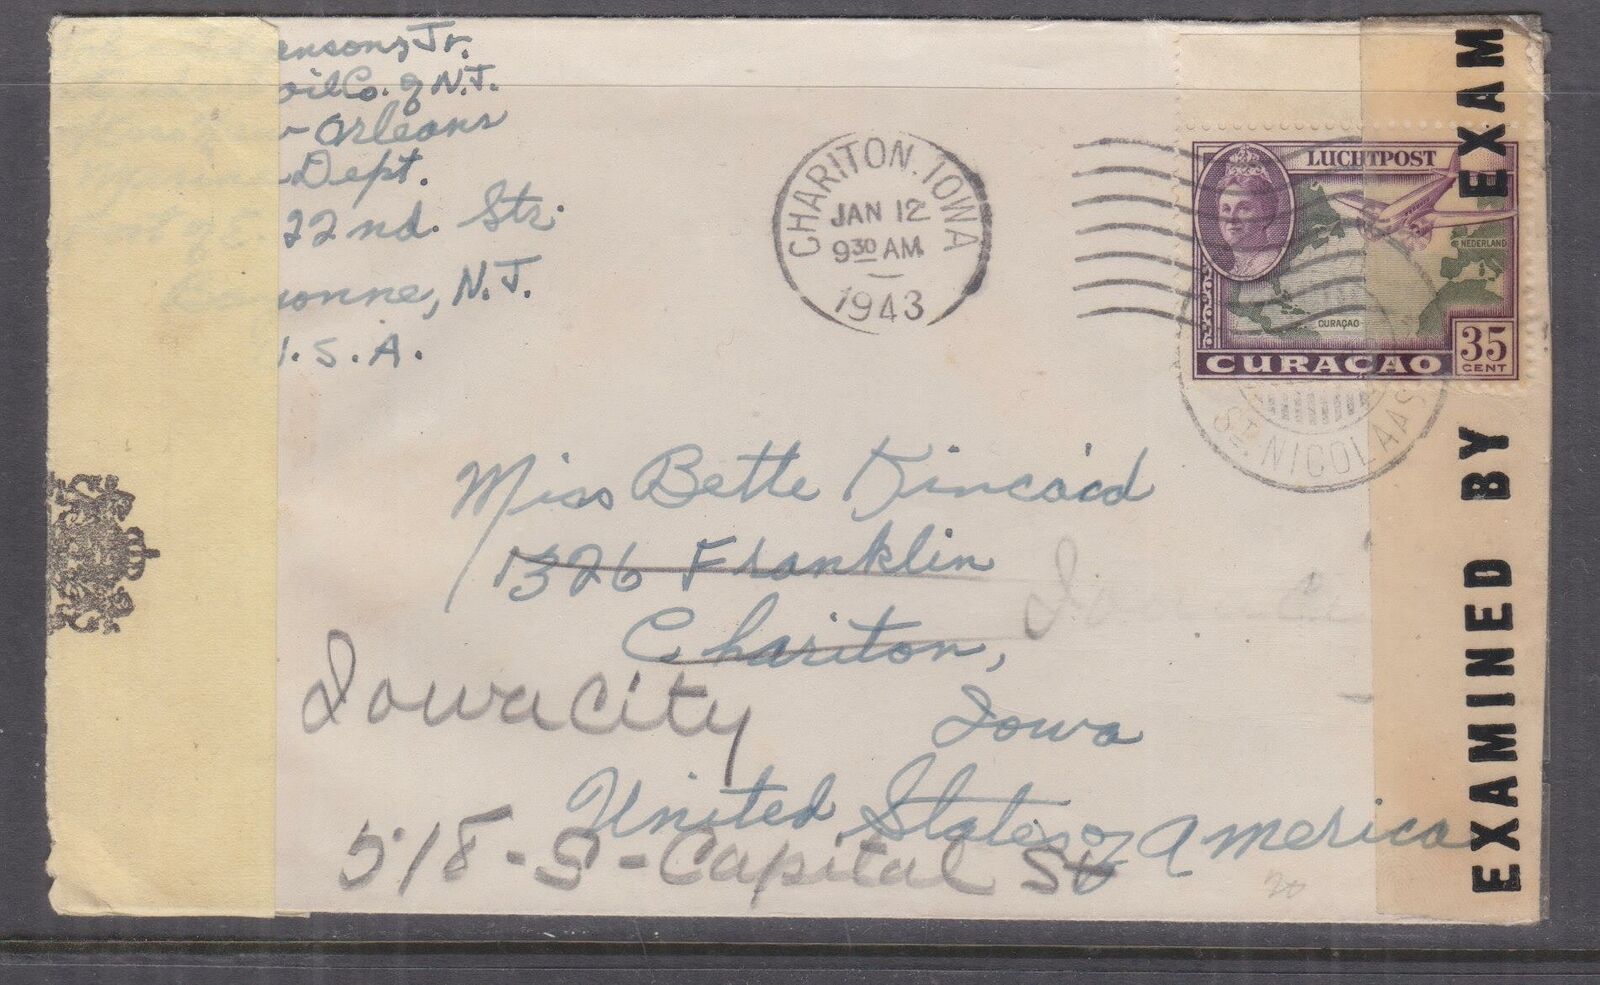 ensons, Jr.
oil Co. of N.J.
Orleans
Dept.
E. 22nd. Str.
Bayonne, N.J.
U.S.A.
CHARITON, IOWA
JAN 12
9 30 AM
1943
LUCHTPOST
NEDERLAND
CURAÇAO
CURAÇAO
35
CENT
ST. NICOLAAS
EXAMINED BY
EXAM
Miss Bette Kincaid
1326 Franklin
Chariton,
Iowa City
Iowa
United States of America
518-S-Capital St
20